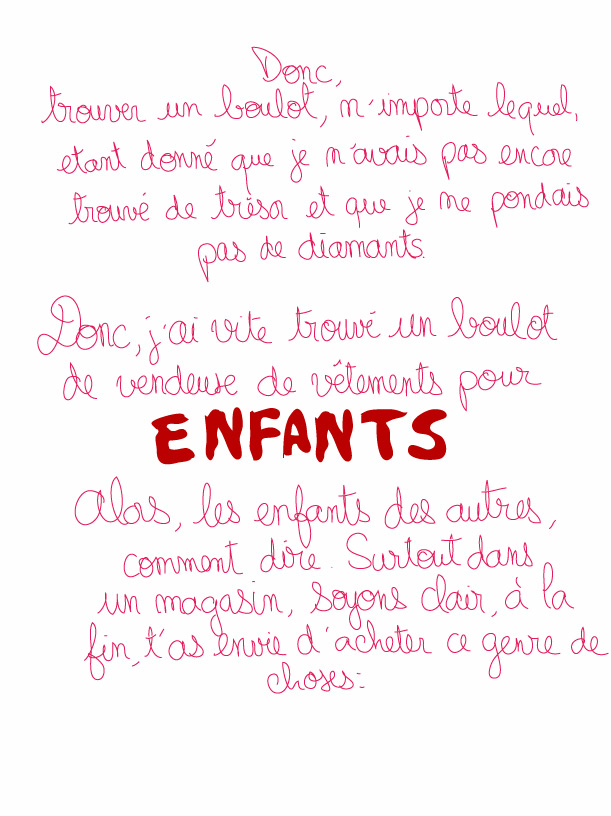 Donc,
trouver un boulot, n'importe lequel,
etant donné que je n'avais pas encore
trouvé de trésor et que je ne pondais
pas de diamants.
Donc, j'ai vite trouvé un boulot
de vendeuse de vêtements pour
ENFANTS
Alors, les enfants des autres,
comment dire. Surtout dans
un magasin, soyons clair, à la
fin, t'as envie d'acheter ce genre de
choses: